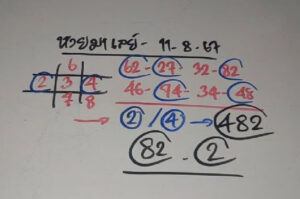 หวยมาเลย์ - 11-8-67
6
2 3 4
7 8
62-27-32-82
46-94-34-48
2/4 → 482
82-2